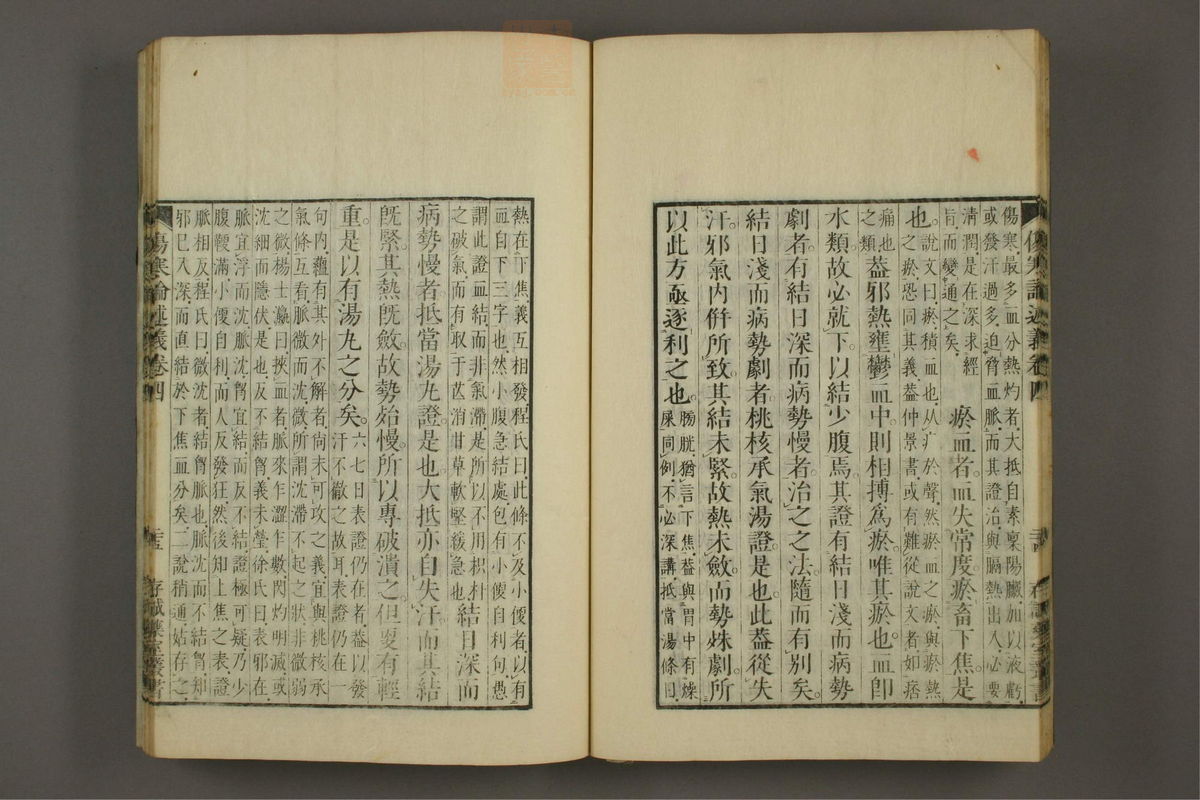 傷寒論述義卷四
傷寒最多血分熱灼者大抵自素稟陽臟加以液虧
或發汗過多迫脅血脈而其證治與膈熱出入必要
清潤是在深求經
旨而變通之矣
瘀血者血失常度瘀畜下焦是
也
說文曰瘀積血也从疒於聲然瘀血之瘀與瘀熱
之瘀恐同其義葢仲景書或有難從說文者如痞
痛也
之類
葢邪熱壅鬱血中則相搏爲瘀唯其瘀也血卽
水類故必就下以結少腹焉其證有結日淺而病勢
劇者有結日深而病勢慢者治之之法隨而有別矣
結日淺而病勢劇者桃核承氣湯證是也此葢從失
汗邪氣內併所致其結未緊故熱未斂而勢殊劇所
以此方亟逐利之也
膀胱猶言下焦葢與胃中有燥
屎同例不必深講抵當湯條曰
熱在下焦義互相發程氏曰此條不及小便者以有
血自下三字也然小腹急結處包有小便自利句愚
謂此證血結而非氣滯是所以不用枳朴
之破氣而有取于芒消甘草軟堅緩急也
結日深而
病勢慢者抵當湯丸證是也大抵亦自失汗而血結
既緊其熱旣斂故勢始慢所以專破潰之但更有輕
重是以有湯丸之分矣
六七日表證仍在者葢以發
汗不徹之故耳表證仍在一
句內蘊有其外不解者尙未可攻之義宜與桃核承
氣條互看脈微而沈微所謂沈滯不起之狀非微弱
之微楊士瀛曰挾血者脈來乍澀乍數閃灼明滅或
沈細而隱伏是也反不結胷義未瑩徐氏曰表邪在
脈宜浮而沈脈沈胷宜結而反不結證極可疑乃少
腹鞕滿小便自利而人反發狂然後知上焦之表證
脈相反程氏曰微沈者結胷脈也脈沈而不結胷知
邪已入深而直結於下焦血分矣二說稍通姑存之
傷寒論述義卷四
存誠藥室叢書